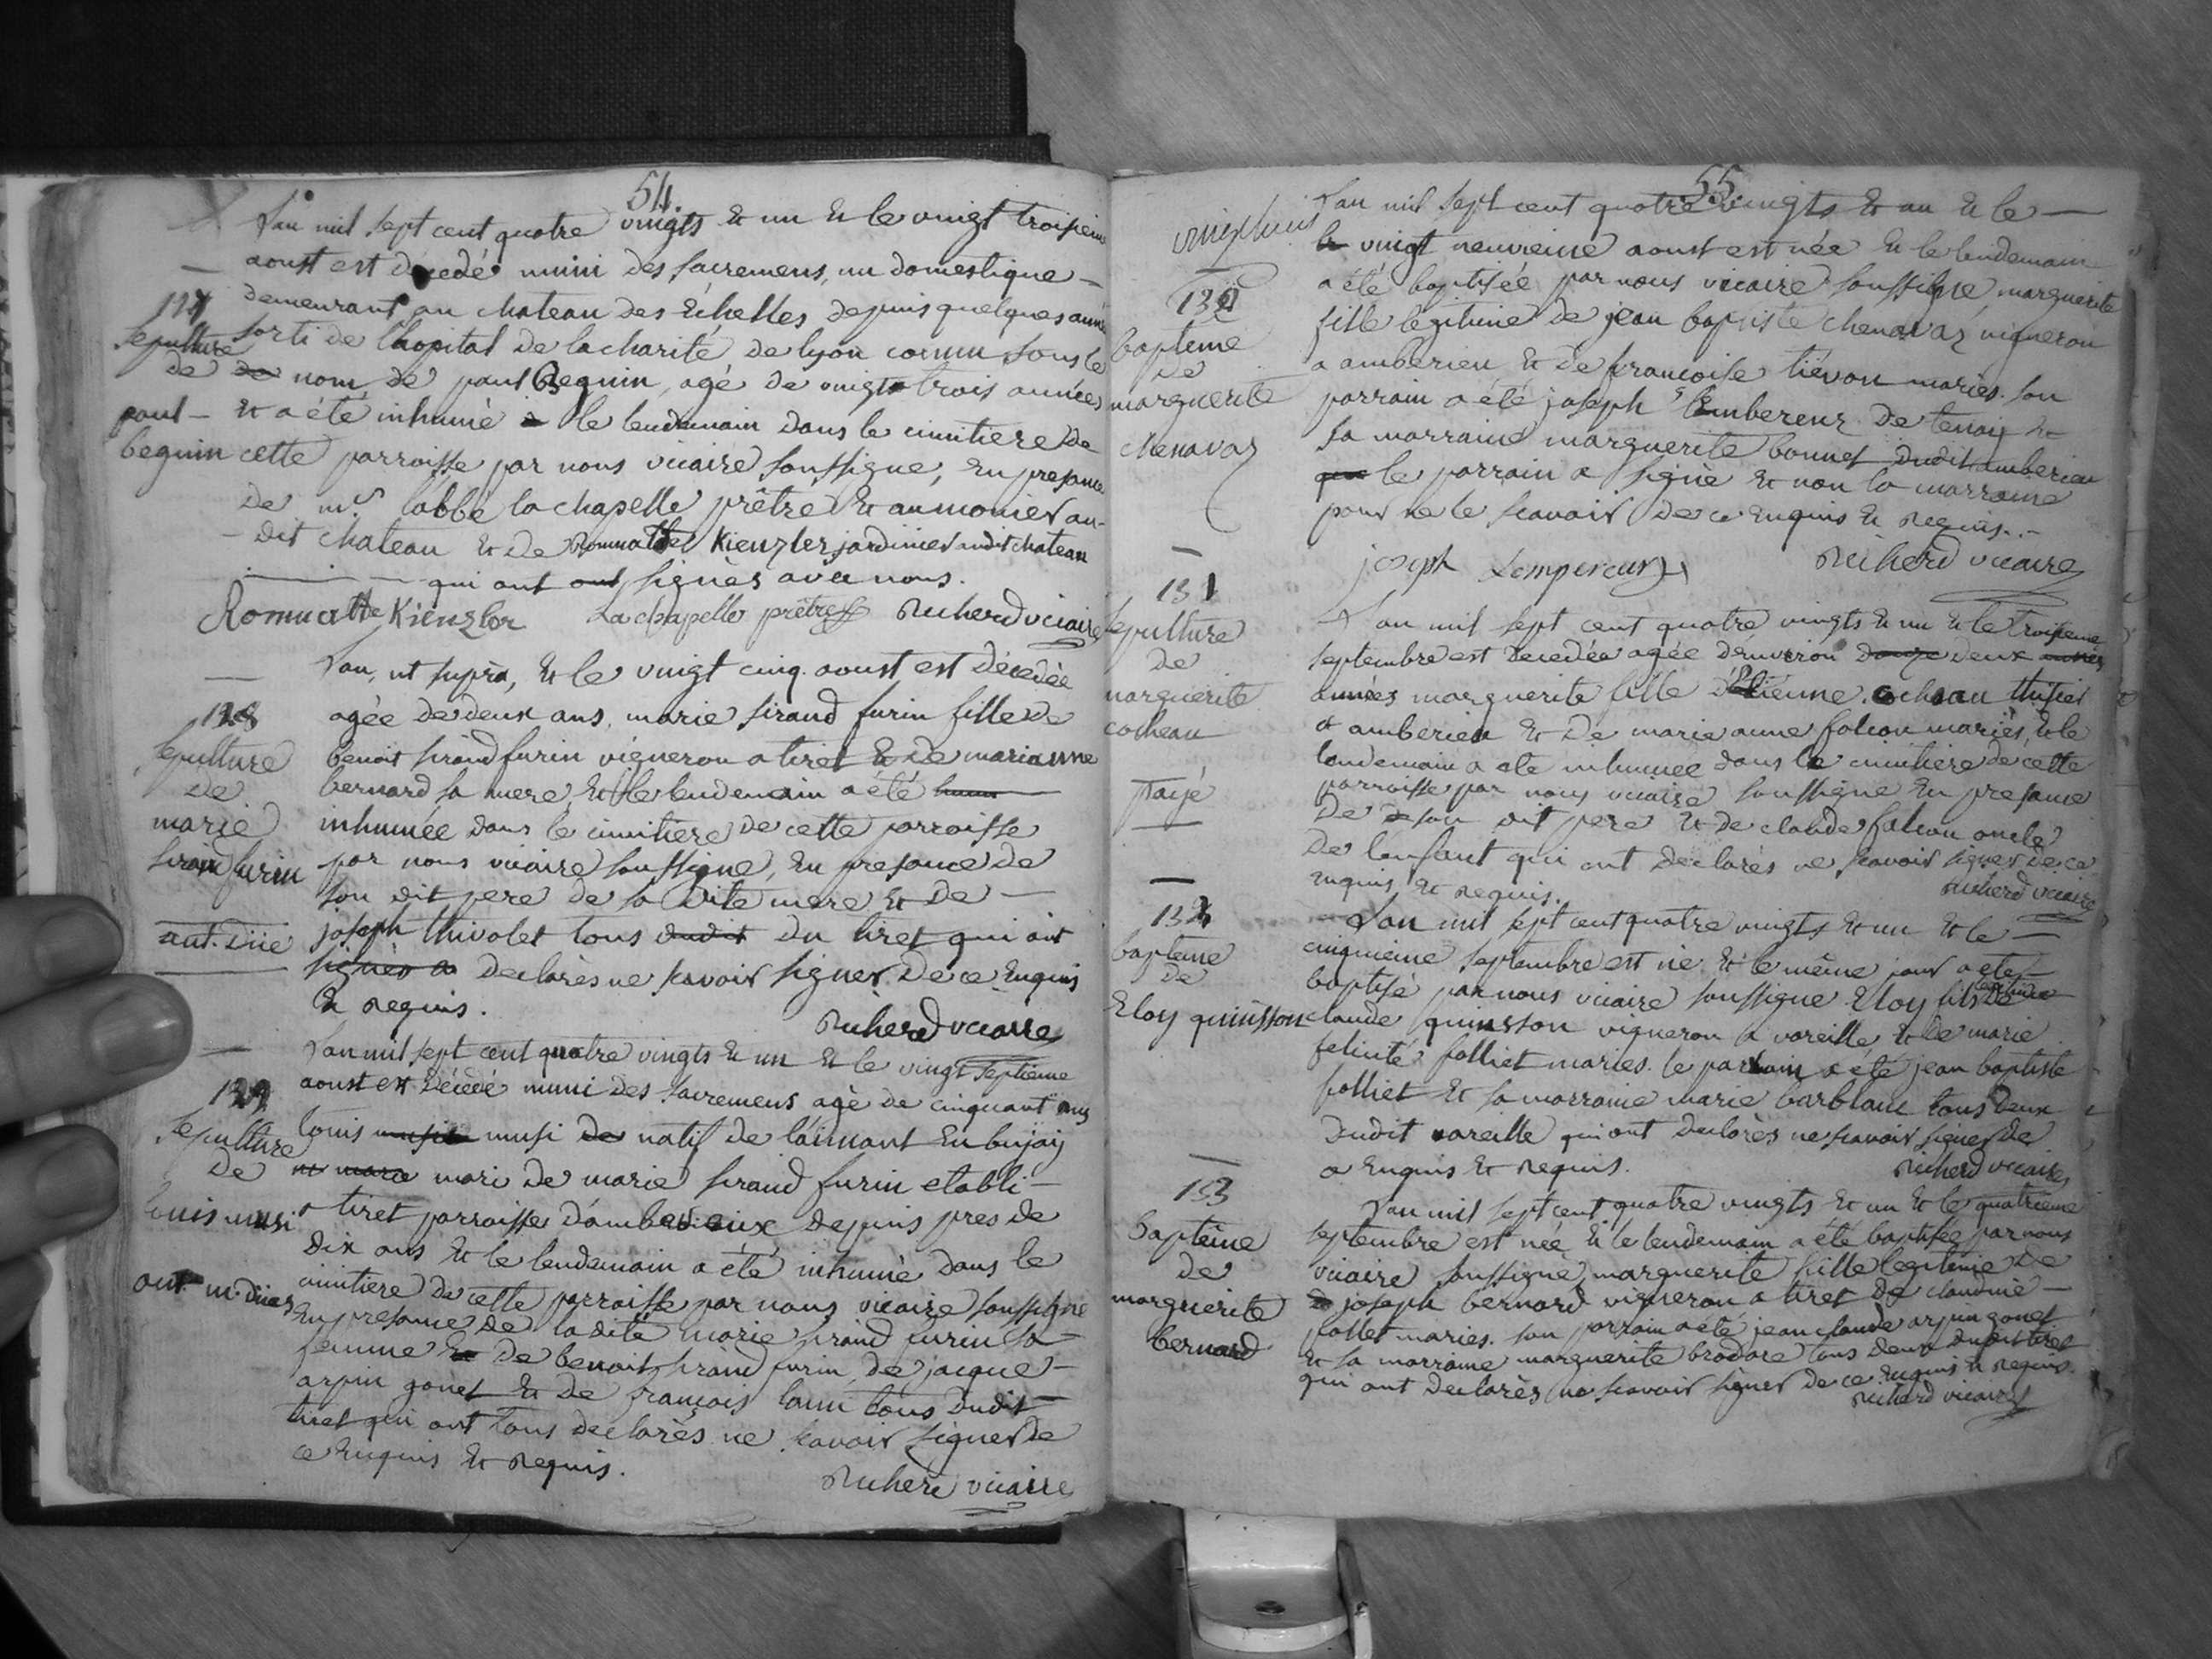 54.
L'an mil sept cent quatre vingts et un et le vingt troisieme
aoust est décedé muni des sacremens, un domestique
demeurant au chateau des Echelles depuis quelques année
127
sepulture
de
paul
beguin
sorti de l'hopital de la charité de lyon connu sous le
nom de paul Beguin, agé de vingt trois années
et a été inhumé le lendemain dans le cimitiere de
cette parroisse par nous vicaire soussigné, en presance
de mr. l'abbé la chapelle prêtre et aumonier au
dit chateau et de Romualde Kienzler jardinier audit chateau
qui ont signés avec nous.
Romualde Kienzler La chapelle prêtre Richerd vicaire
L'an, ut supra, et le vingt cinq aoust est décedée
128
sepulture
de
marie
sirand furin
ant. diie
agée de deux ans, marie sirand furin fille de
benoit sirand furin vigneron a tiret et de marianne
bernard sa mere, et le lendemain a été
inhumée dans le cimitiere de cette parroisse
par nous vicaire soussigné, en presance de
son dit pere de sa dite mere et de
joseph thivolet tous du tiret qui ont
declarès ne scavoir signer de ce enquis
et requis.
Richerd vicaire
L'an mil sept cent quatre vingts et un et le vingt septieme
aoust est décedé muni des sacremens agé de cinquant ans
129
sepulture
de
louis musi
louis musi natif de laimant en bujaij
mari de marie sirand furin etabli
a tiret parroisse d'amberieux depuis pres de
dix ans et le lendemain a été inhumé dans le
cimitiere de cette parroisse par nous vicaire soussigné
en presance de la dite marie sirand furin sa
femme de benoit sirand furin, de jacque
arpin gonet et de françois tous dudit
tiret qui ont tous declarès ne scavoir signer de
ce enquis et requis.
Richerd vicaire
55.
L'an mil sept cent quatre vingts et un et le
vingt neuvieme aoust est née et le lendemain
130
bapteme
de
marguerite
chenavaz
a été baptisée par nous vicaire soussigné marguerite
fille légitime de jean baptiste chenavaz vigneron
a amberieu et de françoise tiévon mariés. son
parrain a été joseph de tenay et
sa marraine marguerite bonnet dudit amberieu
le parrain a signé et non la marraine
pour ne le scavoir de ce enquis et requis.
joseph Lempereur Richerd vicaire
131
sepulture
de
marguerite
cocheau
payé
L'an mil sept cent quatre vingts et un et le troisieme
septembre est decedée agée d'environ deux
années marguerite fille d'Etienne cocheau
a amberieu et de marie anne falcon mariés, et le
lendemain a été inhumée dans le cimitiere de cette
parroisse par nous vicaire soussigné en presance
de son dit pere et de claude falcon oncle
de l'enfant qui ont declarès ne scavoir signer de ce
enquis et requis.
Richerd vicaire
132
bapteme
de
Eloy quinsson
L'an mil sept cent quatre vingts et un et le
cinquieme septembre est né et le même jour a été
baptisé par nous vicaire soussigné Eloy fils légitime de
claude quinsson vigneron a vareille et de marie
felicité folliet mariés. le parrain a été jean baptiste
folliet et sa marraine marie barblanc tous deux
dudit vareille qui ont declarès ne scavoir signer de
ce enquis et requis.
Richerd vicaire
133
bapteme
de
marguerite
bernard
L'an mil sept cent quatre vingts et un et le quatrieme
septembre est née et le lendemain a été baptisée par nous
vicaire soussigné marguerite fille legitime de
joseph bernard vigneron a tiret de claudine
follet mariés. son parrain a été jean claude arpin gonet
et sa marraine marguerite brodare tous deux dudit tiret
qui ont declarès ne scavoir signer de ce enquis et requis.
Richerd vicaire